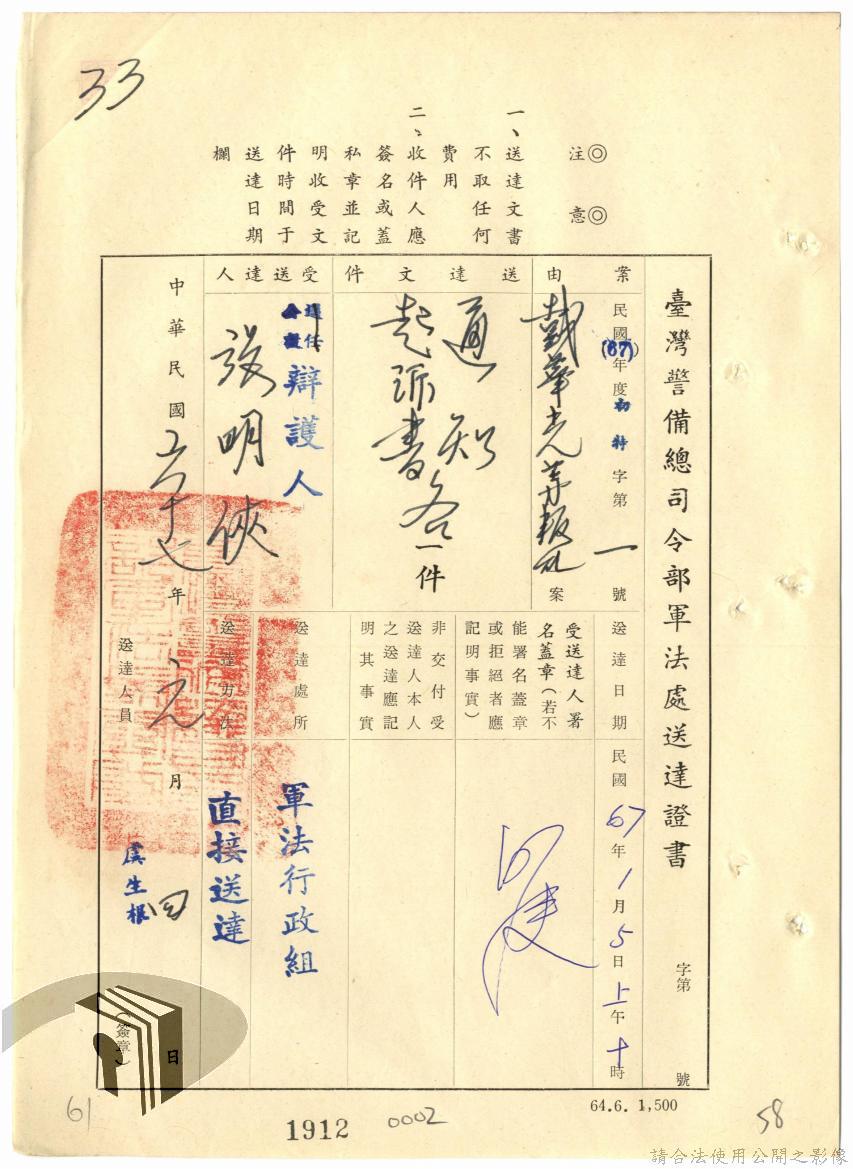 33
◎注意◎
一、送達文書
不取任何
費用
二、收件人應
簽名或蓋
私章並記
明收受文
件時間于
送達日期
欄
臺灣警備總司令部軍法處送達證書
字第
號
案由
民國(67)年度初特字第一號
戴華光等叛亂
案
送達文件
通知
起訴書各一件
受送達人
選任
公設
辯護人
張明俠
送達日期
民國67年1月5日上午十時
受送達人署
名蓋章(若不
能署名蓋章
或拒絕者應
記明事實)
非交付受
送達人本人
之送達應記
明其事實
送達處所
軍法行政組
送達方法
直接送達
中華民國六十七年元月四日
送達人員
虞生根
(簽章)
64.6. 1,500
61
1912
0002
58
請合法使用公開之影像